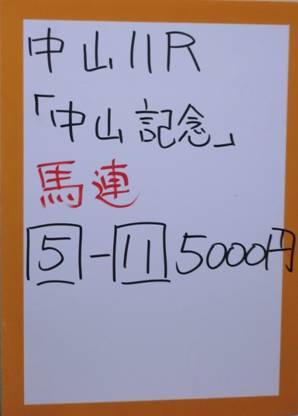 中山11R
「中山記念」
馬連
5-11 5000円